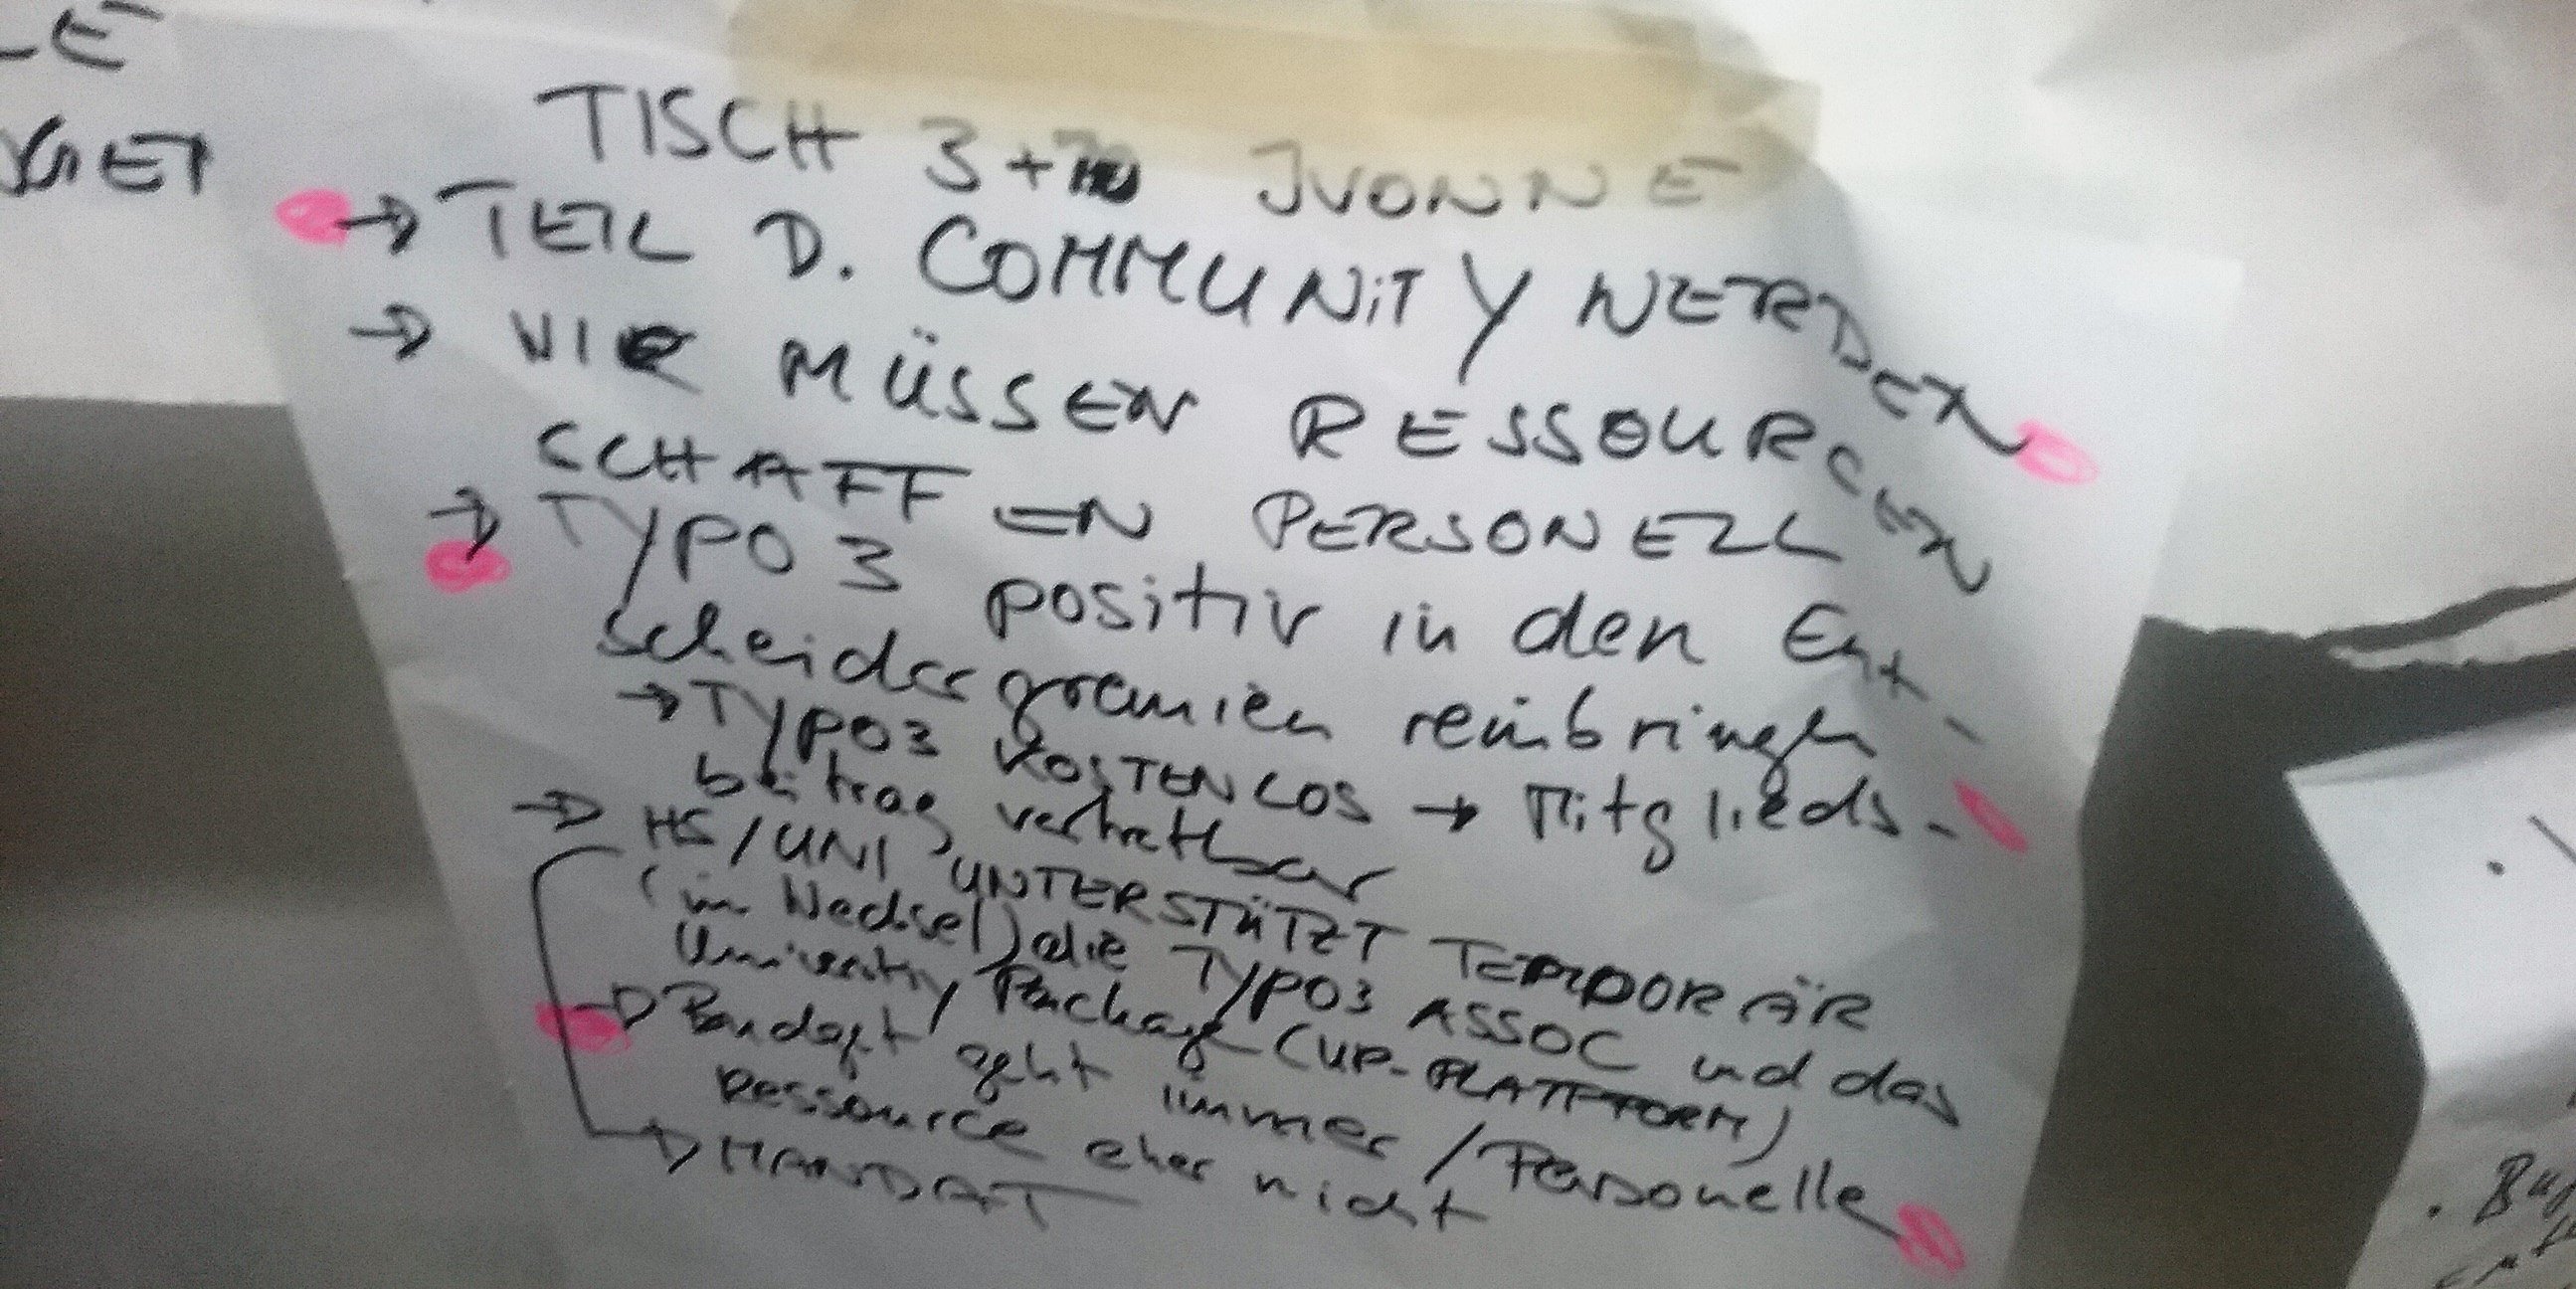 LE
GET
TISCH 3 + JVONNE
→ TEIL D. COMMUNITY WERDEN
→ WIR MÜSSEN RESSOURCEN
SCHAFFEN PERSONELL
→ TYPO3 positiv in den Ent-
scheidgsgremien reinbringen
→ TYPO3 KOSTENLOS → Mitglieds-
beitrag vertretbar
→ HS/UNI UNTERSTÜTZT TEMPORÄR
(im Wechsel) die TYPO3 ASSOC und das
University Package (UP-PLATTFORM)
→ Budget geht immer / Personelle
Ressource eher nicht
→ MANDAT